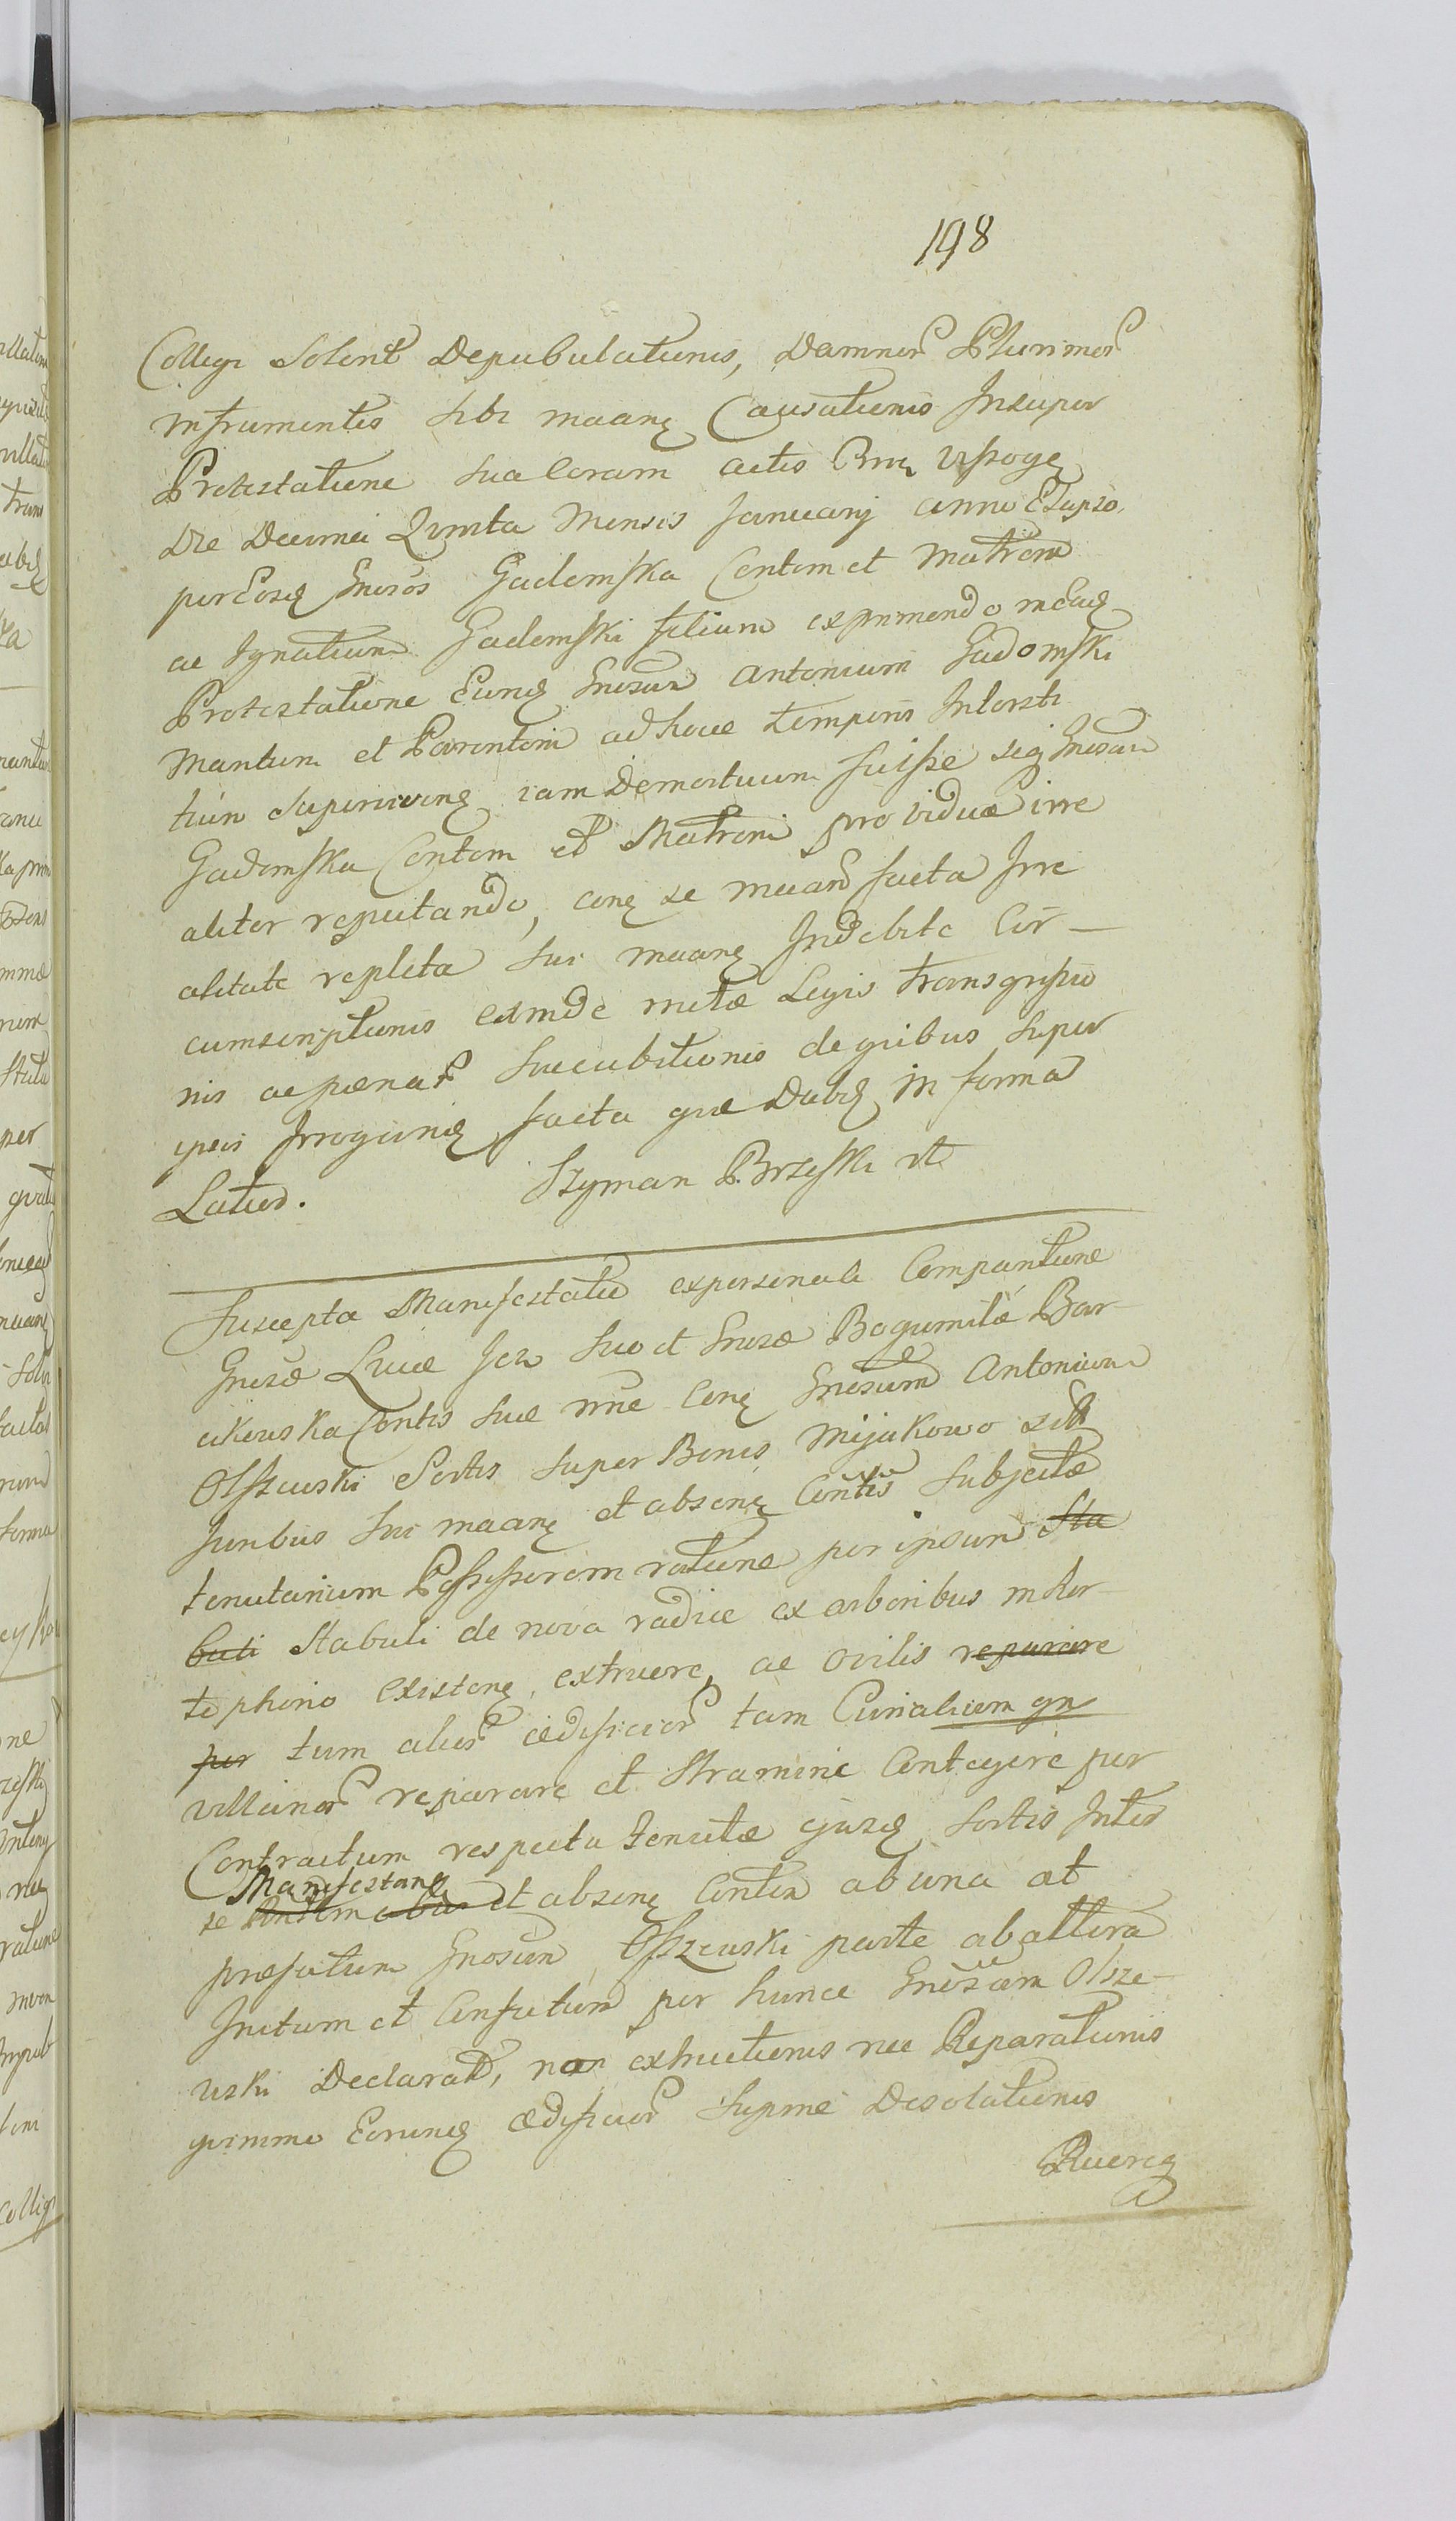 198
Collegi Solent Depabulationis, Damnor Plurimor
in frumentis sibi maang Causationis Insuper
Protestatione sua Coram actis Wyssoge
Die Decima Quinta Mensis Januarij anno Elapso
per Eosq Gnosos Gadomska Contem et Matrem
ac Ignatium Gadomski filium exprimendo in Eadq
Protestatione Eunq Gnosum Antonium Gadomski
Maritum et Parentem ad hocce temporis Intersti
tium superviveng iam Demortuum fuisse Gnosam
Gadomska Contem et Matrem pro vidua irre
aliter reputando, conq se maand facta Irre
alitate repleta sui maanq Indebite Cir-
cumscriptionis eximde metae Legis transgressio
nis ac paenar succubitionis de quibus super
ipsis Irroganq facta quae Dabq in forma
Latior. Szyman Brzeski
Suscepta Manifestatio ex personali Comparitione
Gnosae Lucae suo et Gnosae Bogumilae Bar
cikowska Contis suae nne Conq Gnosum Antonium
Olszewski Sortis super Bonis Mijakowo
Juribus sui maanq et absenq Contis subjectae
tenutarium Possessorem ratione per ipsum Sta
buli Stabuli de nova radice ex arboribus in hor
to phorio existenq extruere, ac ovilis reparare
per tum alior aedificior tam Curialium qu
villanor reparare et Stramine Contegere per
Contractum respectu tenutae ejusq sortis Inter
Manifestanq
se et absenq Contem ab una at
praefatum Gnosum Olszewski parte ab altera
Initum et Confectum per hunce Gnosum Olsze-
wski Declarat, non extructionis nec Reparationis
quimmo Eorunq aedificior supme Desolationis
Quercq